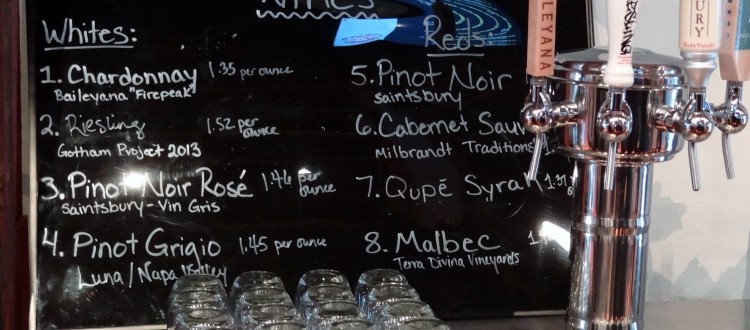 WINES
Whites:
1. Chardonnay 1.35 per ounce
Baileyana "Firepeak"
2. Riesling 1.52 per ounce
Gotham Project 2013
3. Pinot Noir Rosé 1.46 per ounce
Saintsbury - Vin Gris
4. Pinot Grigio 1.45 per ounce
Luna / Napa Valley
Reds:
5. Pinot Noir
Saintsbury
6. Cabernet Sauv
Milbrandt Traditions
7. Qupé Syrah
8. Malbec
Terra Divina Vineyards
LEYANA
URY
NAPA VALLEY